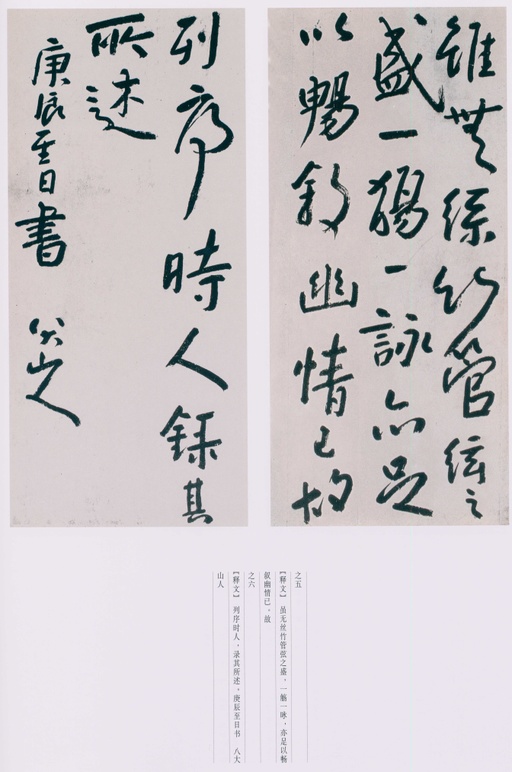 雖無絲竹管絃之
盛一觴一詠亦足
以暢敘幽情已故
列序時人錄其
所述
庚辰至日書 八大山人
之五
【释文】 虽无丝竹管弦之盛，一觞一咏，亦足以畅
叙幽情已，故
之六
【释文】 列序时人，录其所述，庚辰至日书 八大
山人